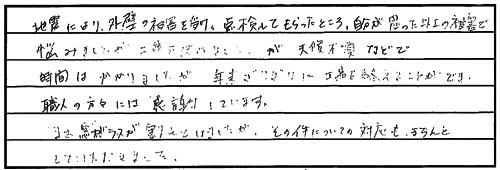 地震により、外壁の被害を受け、点検してもらったところ、自分が思った以上の被害で
悩みましたが が 天候不順などで
時間はかかりましたが 年末ぎりぎりに 工事を終えることができ、
職人の方々には感謝しています。
窓ガラスが その件についての対応も、きちんと
していただきました。